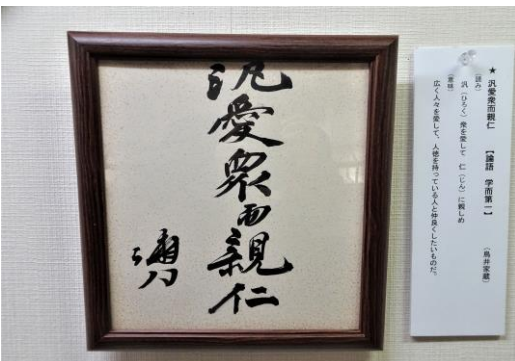 汎愛衆而親仁
★ 汎愛衆而親仁 【論語 学而第一】 (鳥井家蔵)
(読み)
汎(ひろく)衆を愛して 仁(じん)に親しめ
(意味)
広く人々を愛して、人徳を持っている人と仲良くしたいものだ。